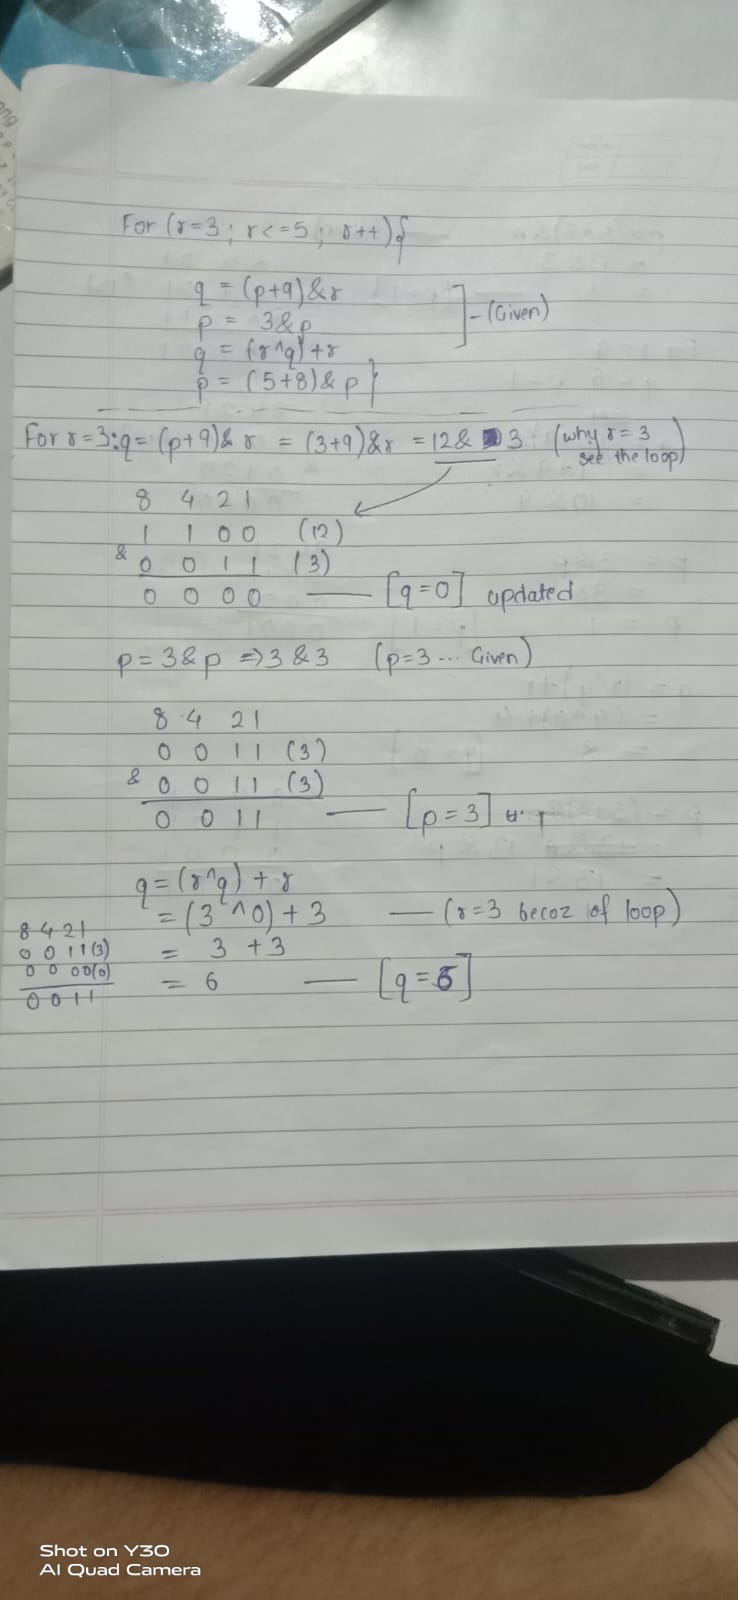 For (r=3; r<=5; r++){
q = (p+9)&r
p = 3&p
q = (r^q)+r
p = (5+8)&p}
]-(Given)
For r=3: q= (p+9)& r = (3+9)&r = 12& 3 (why r=3 see the loop)
8 4 2 1
1 1 0 0 (12)
& 0 0 1 1 (3)
0 0 0 0 — [q=0] updated
p=3&p => 3&3 (p=3... Given)
8 4 2 1
0 0 1 1 (3)
& 0 0 1 1 (3)
0 0 1 1 — [p=3]
q=(r^q)+r
= (3^0)+3 — (r=3 becoz of loop)
= 3 +3
= 6 — [q=6]
8 4 2 1
0 0 1 1(3)
0 0 0 0(0)
0 0 1 1
Shot on Y30
AI Quad Camera